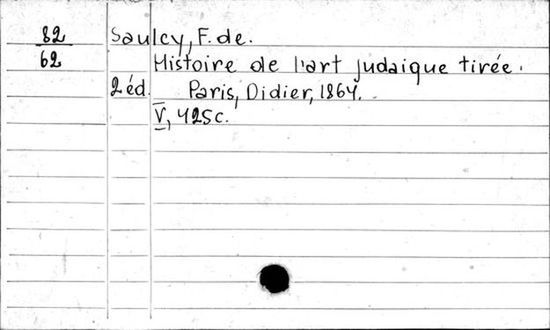 82 Saulcy, F. de.
62 Histoire de l'art judaique tirée.
2 éd. Paris, Didier, 1864.
V, 425c.